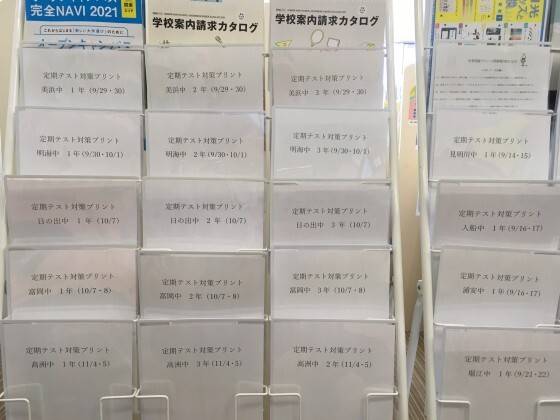 完全NAVI 2021
学校案内請求カタログ
学校案内請求カタログ
定期テスト対策プリント
美浜中 1年(9/29・30)
定期テスト対策プリント
美浜中 2年(9/29・30)
定期テスト対策プリント
美浜中 3年(9/29・30)
定期テスト対策プリント
明海中 1年(9/30・10/1)
定期テスト対策プリント
明海中 2年(9/30・10/1)
定期テスト対策プリント
明海中 3年(9/30・10/1)
定期テスト対策プリント
見明川中 1年(9/14・15)
定期テスト対策プリント
日の出中 1年(10/7)
定期テスト対策プリント
日の出中 2年(10/7)
定期テスト対策プリント
日の出中 3年(10/7)
定期テスト対策プリント
入船中 1年(9/16・17)
定期テスト対策プリント
富岡中 1年(10/7・8)
定期テスト対策プリント
富岡中 2年(10/7・8)
定期テスト対策プリント
富岡中 3年(10/7・8)
定期テスト対策プリント
浦安中 1年(9/16・17)
定期テスト対策プリント
高洲中 1年(11/4・5)
定期テスト対策プリント
高洲中 3年(11/4・5)
定期テスト対策プリント
高洲中 2年(11/4・5)
定期テスト対策プリント
堀江中 1年(9/21・22)